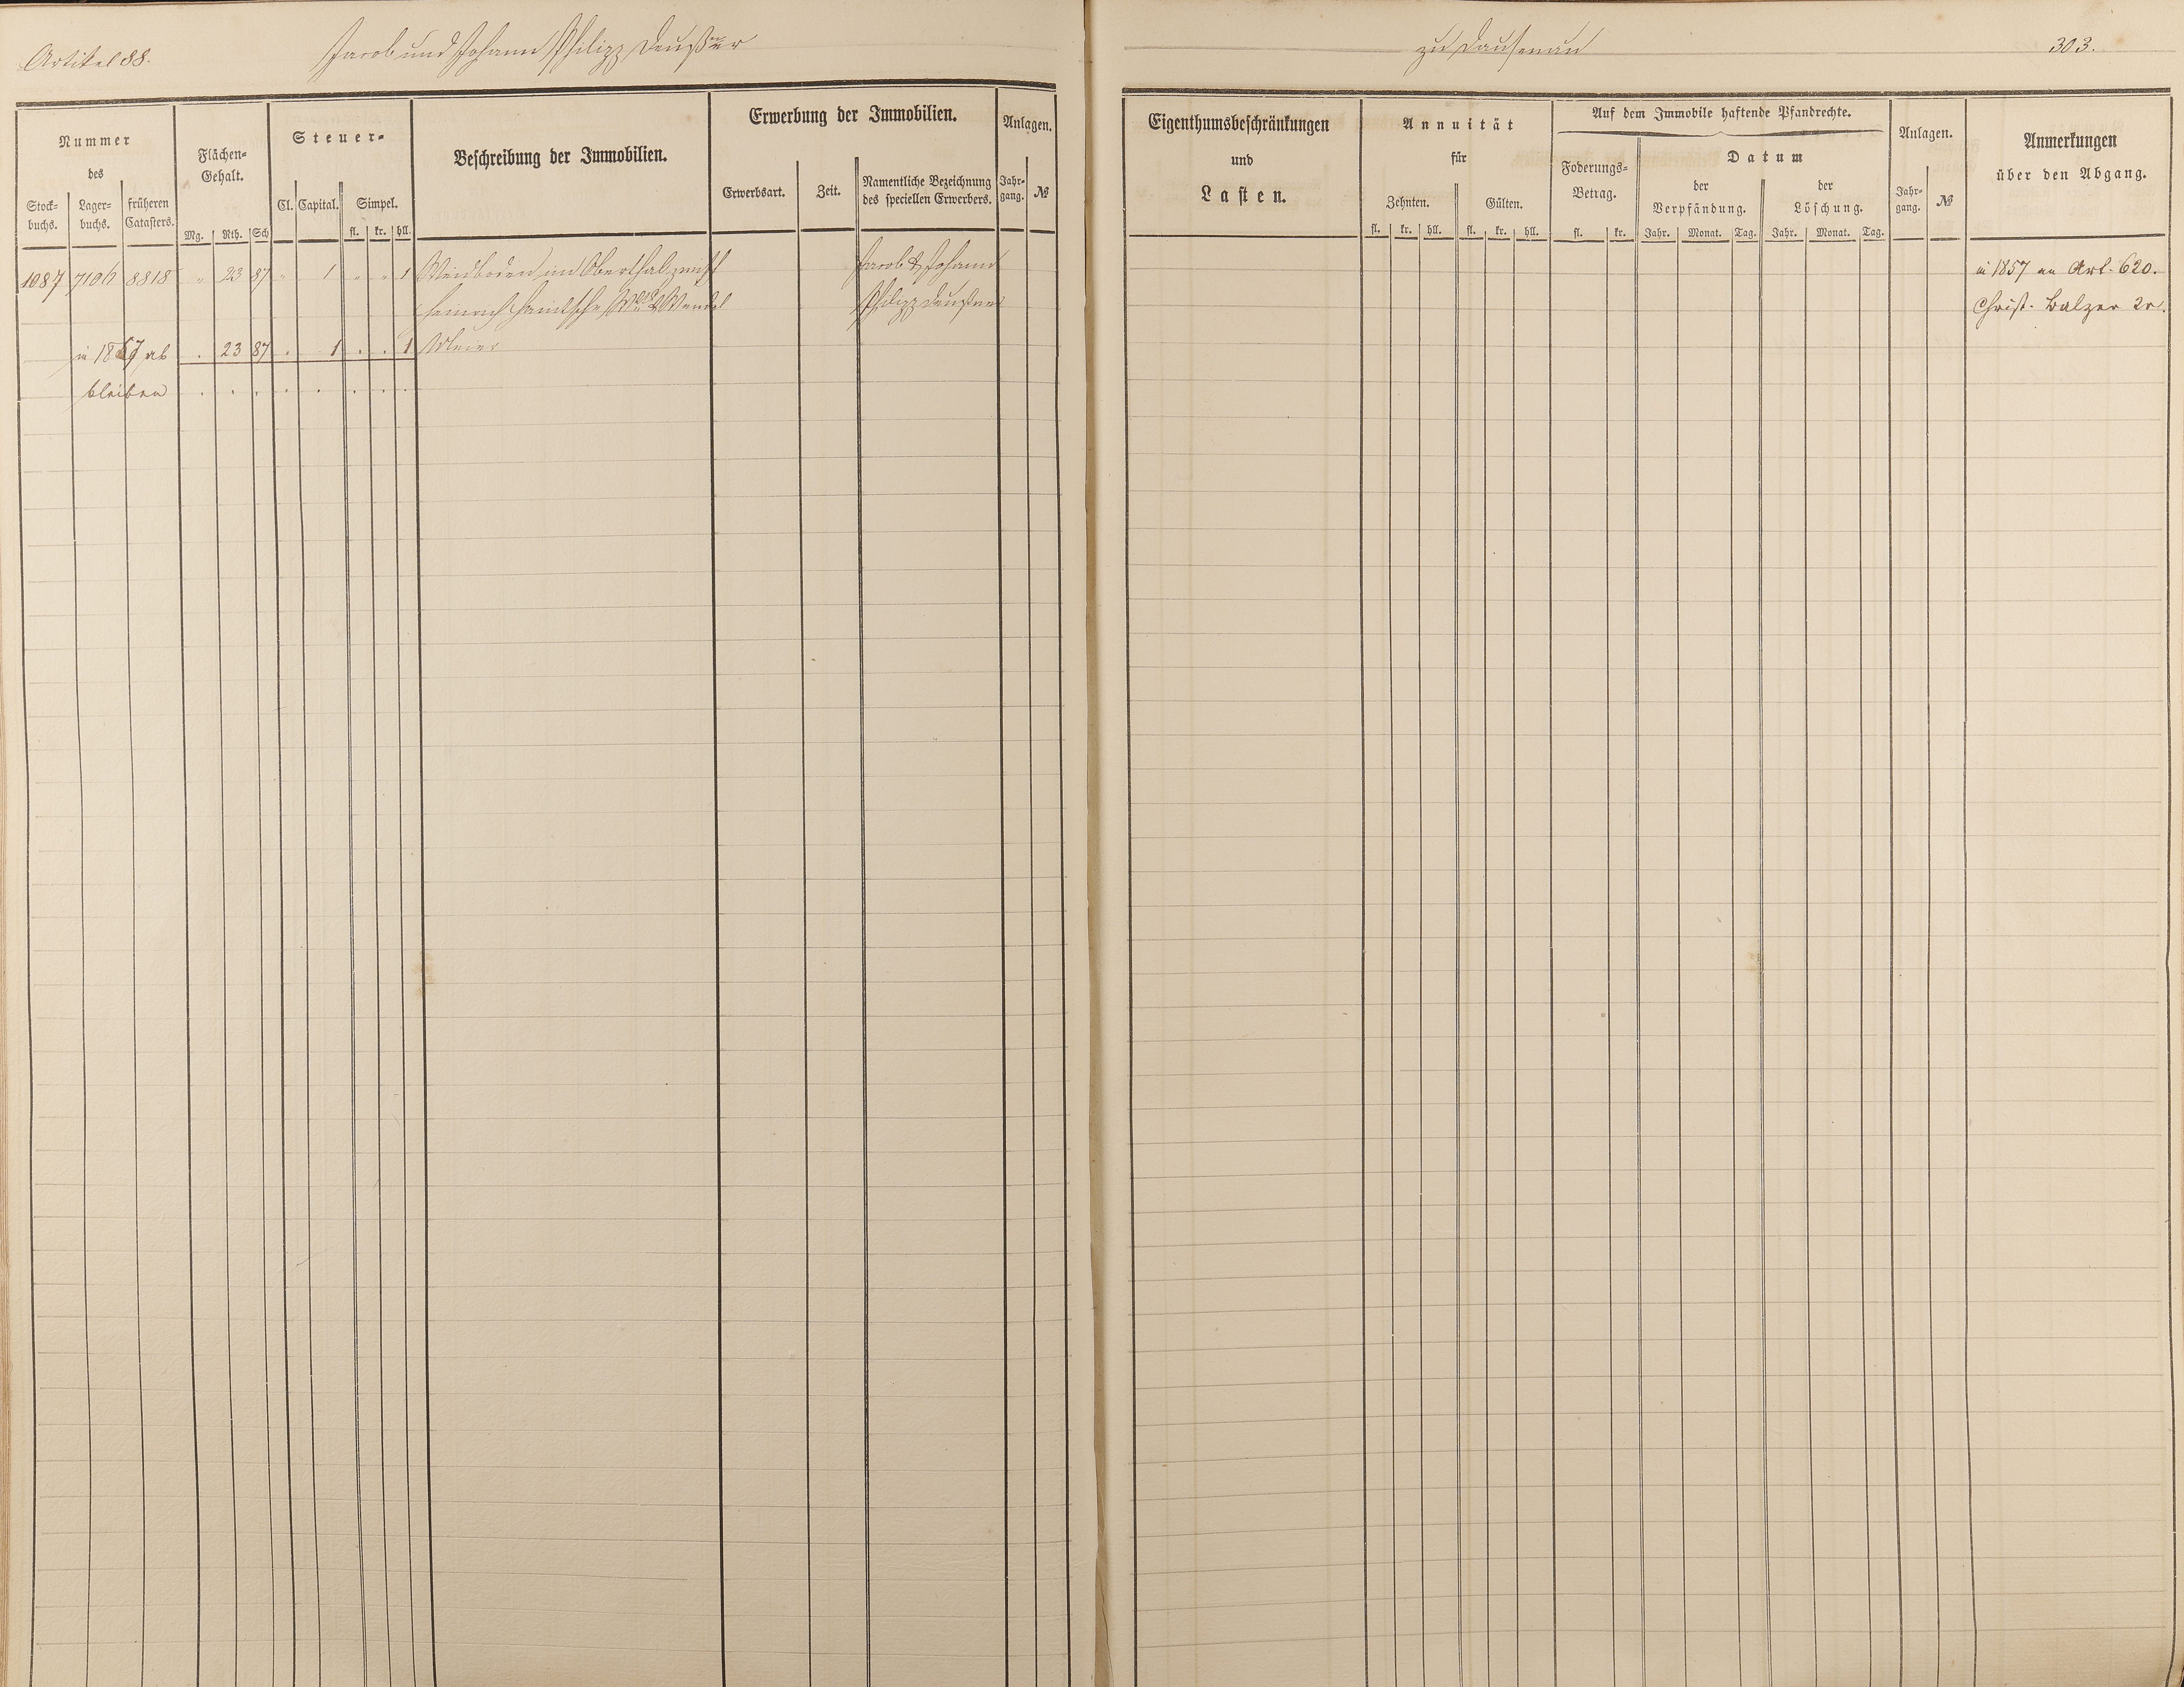 Artikel 88.
Jacob und Johann Philipp Deußner
zu Dausenau
303.
Nummer
des
Stock-
buchs.
Lager-
buchs.
früheren
Catasters.
Flächen-
Gehalt.
Mg. Rth. Sch
Steuer-
Cl. Capital. Simpel.
fl. kr. hll.
Beschreibung der Immobilien.
Erwerbung der Immobilien.
Erwerbsart. Zeit.
Namentliche Bezeichnung
des speciellen Erwerbers.
Anlagen.
Jahr-
gang.
№
Eigenthumsbeschränkungen
und
Lasten.
Annuität
für
Zehnten. Gülten.
fl. kr. hll. fl. kr. hll.
Auf dem Immobile haftende Pfandrechte.
Foderungs-
Betrag.
fl. kr.
Datum
der
Verpfändung.
der
Löschung.
Jahr. Monat. Tag. Jahr. Monat. Tag.
Anlagen.
Jahr-
gang.
№
Anmerkungen
über den Abgang.
1087 7106 8818 " 23 87 " 1 " " 1 Weidboden im Oberthal zwischen Jacob & Johann in 1857 an Art. 620.
Heinrich & Wendel Philipp Deußner Christ. Balzer 2r.
in 1857 ab . 23 87 . 1 . . 1
bleiben . . . . . . . .